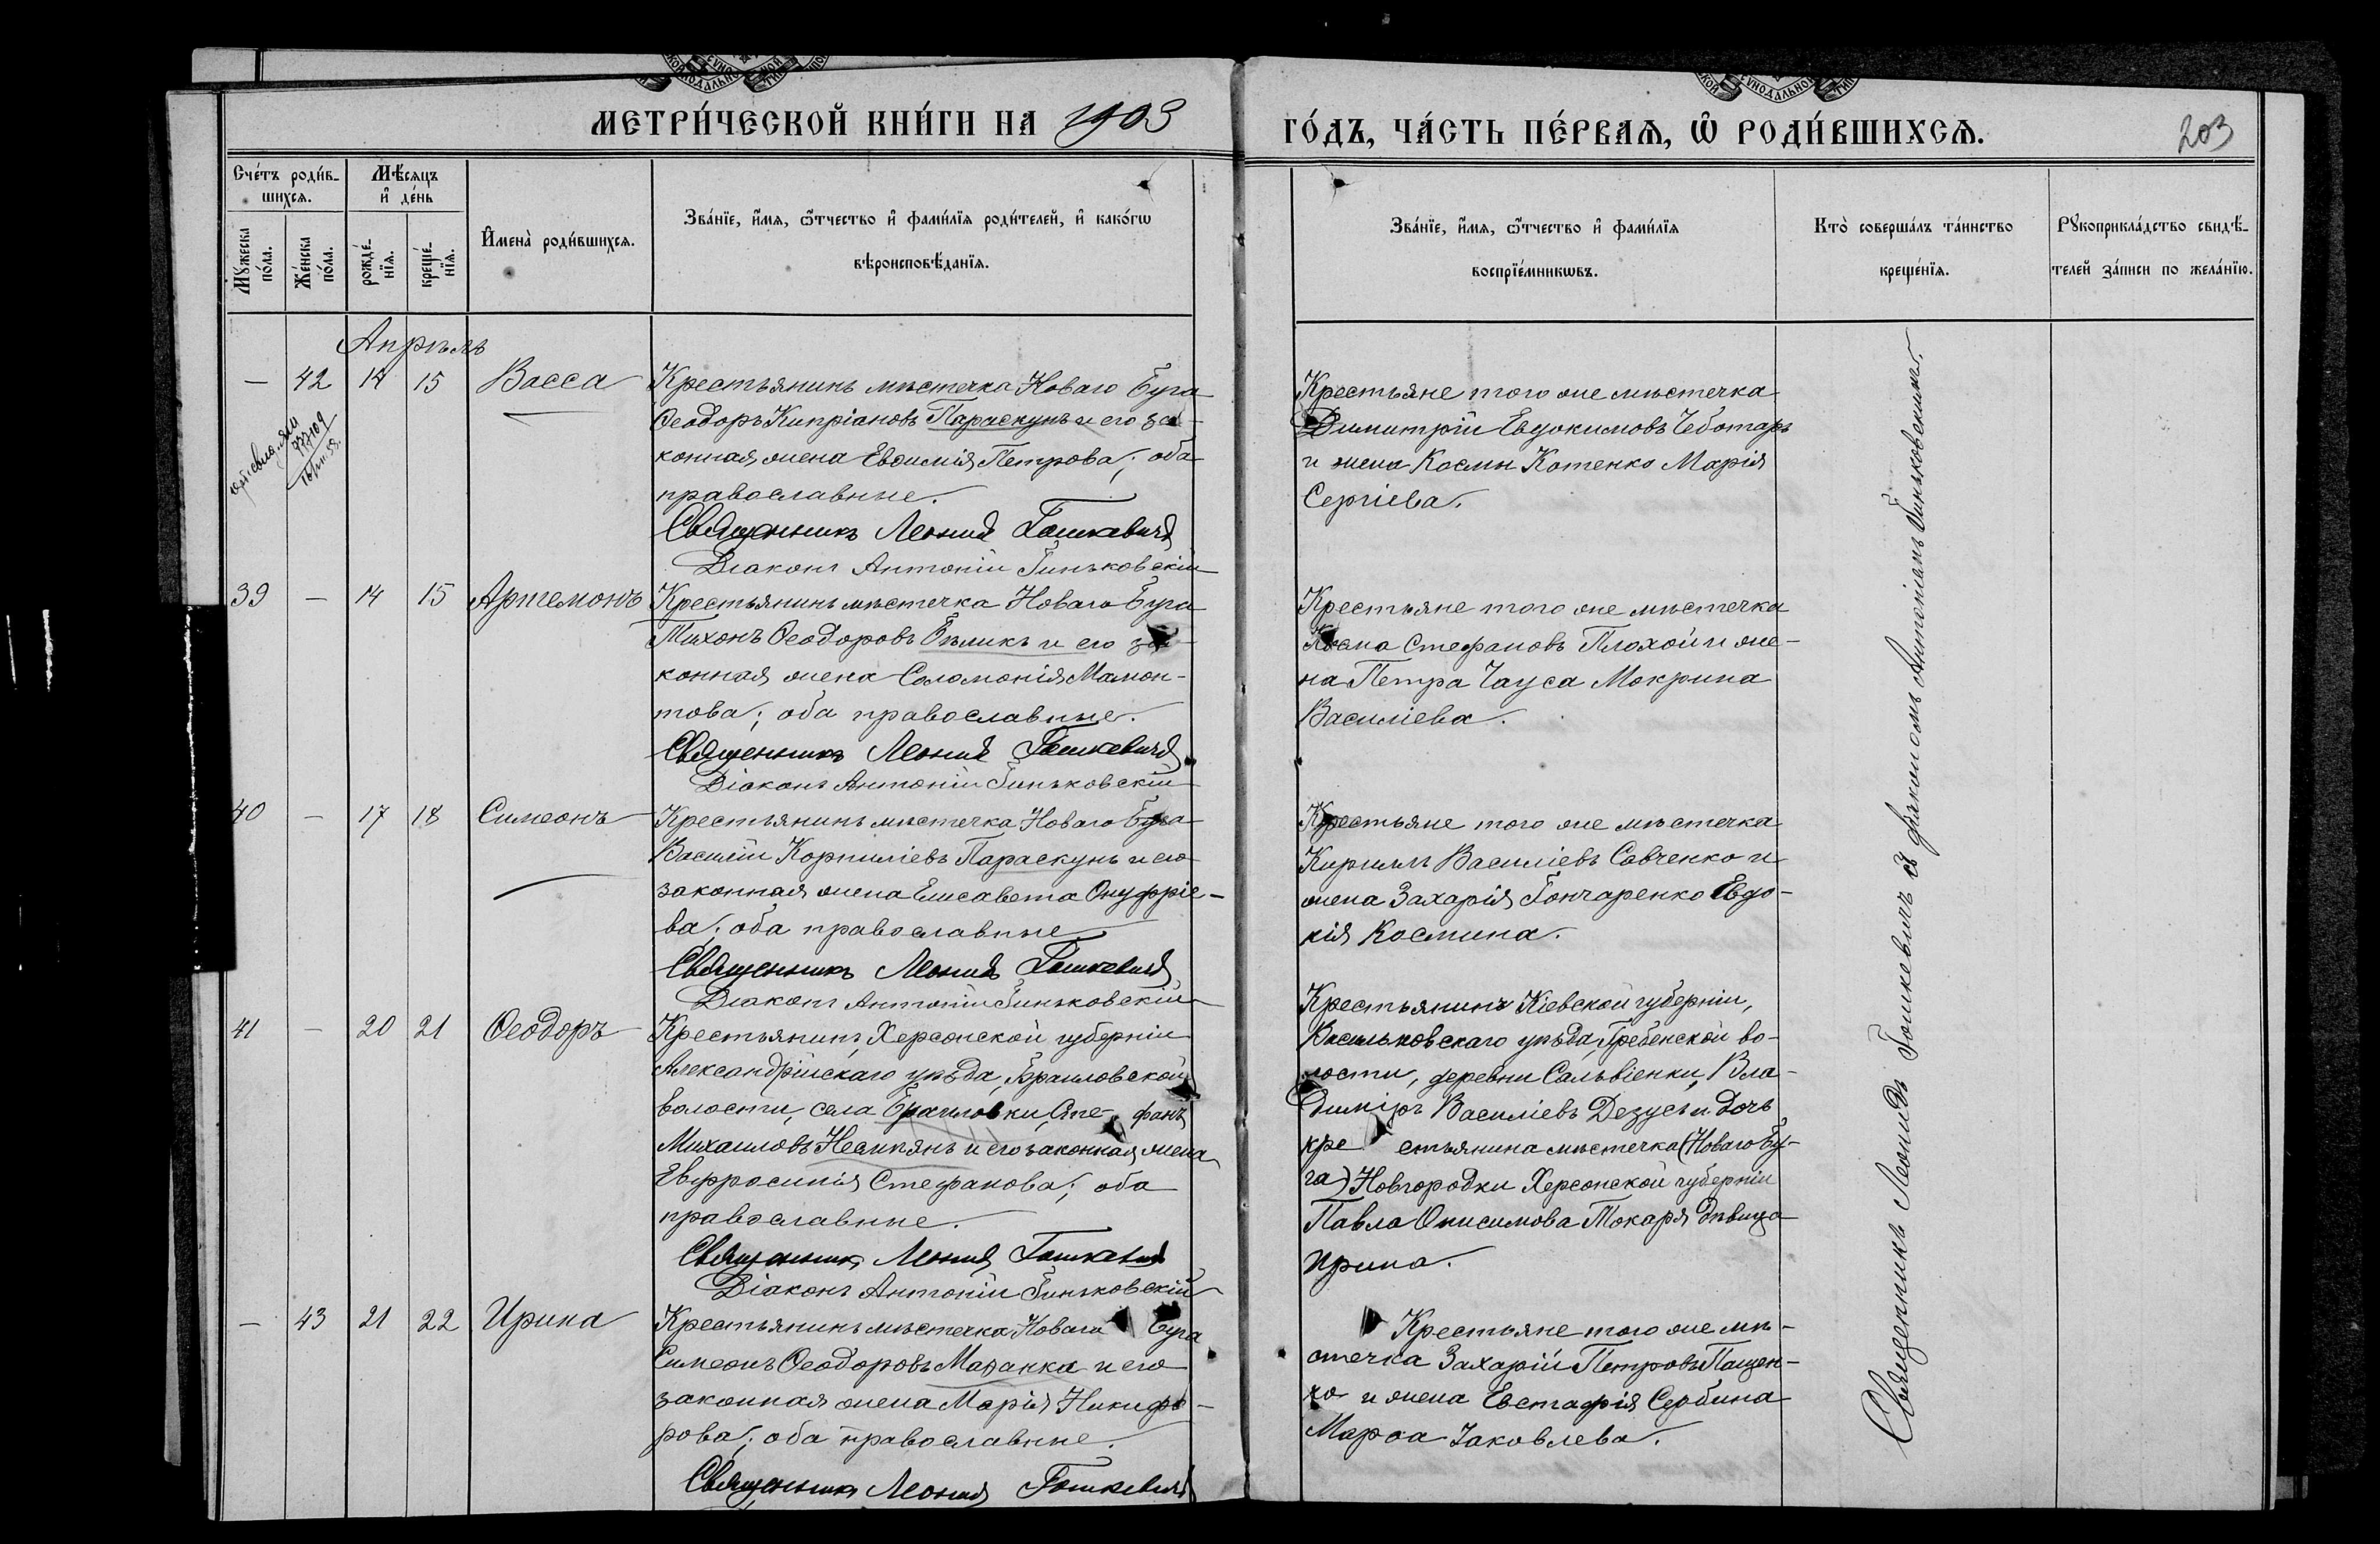 МЕТРИ́ЧЕСКОЙ КНИ́ГИ НА 1903
ГО́ДЪ, ЧА́СТЬ ПЕ́РВАѦ, Ѡ҆ РОДИ́ВШИХСѦ.
203
Сче́тъ роди́в-
шихсѧ.
Мѣ́сѧцъ
и҆ де́нь
Мꙋ́жеска
по́ла.
Же́нска
по́ла.
рожде́-
нїѧ.
креще́-
нїѧ.
И҆мена̀ роди́вшихсѧ.
Зва́нїе, и҆́мѧ, ѻ҆́тчество и҆ фами́лїѧ роди́телей, и҆ како́гѡ
вѣроисповѣ́данїѧ.
Зва́нїе, и҆́мѧ, ѻ҆́тчество и҆ фами́лїѧ
воспрїе́мникѡвъ.
Кто̀ соверша́лъ та́инство
креще́нїѧ.
Рꙋкоприкла́дство свидѣ́-
телей за́писи по жела́нїю.
Апрѣль
— 42 14 15 Васса
Крестьянинъ мѣстечка Новаго Буга
Ѳеодоръ Кипріановъ Параскунъ и его за-
конная жена Евѳимія Петрова; оба
православные.
Священникъ Леонид Гошкевичъ
Діаконъ Антоній Биньковскій
Крестьяне того же мѣстечка
Димитрій Евдокимовъ Чеботарь
и жена Космы Котенко Марія
Сергіева.
39 — 14 15 Артемонъ
Крестьянинъ мѣстечка Новаго Буга
Тихонъ Ѳеодоровъ Бѣликъ и его за-
конная жена Соломонія Мамон-
това; оба православные.
Священникъ Леонид Гошкевичъ
Діаконъ Антоній Биньковскій
Крестьяне того же мѣстечка
Косма Стефановъ Плохой и же-
на Петра Чауса Мокрина
Василіева.
40 — 17 18 Симеонъ
Крестьянинъ мѣстечка Новаго Буга
Василій Корниліевъ Параскунъ и его
законная жена Елисавета Онуфріе-
ва; оба православные
Священникъ Леонид Гошкевичъ
Діаконъ Антоній Биньковскій
Крестьяне того же мѣстечка
Кириллъ Василіевъ Савченко и
жена Захарія Гончаренко Евдо-
кія Космина.
41 — 20 21 Ѳеодоръ
Крестьянинъ Херсонской губерніи
Александрійскаго уѣзда, Браиловской
волости, села Браиловки, Сте- фанъ
Михаиловъ и его законная жена
Евфросинія Стефанова; оба
православные.
Священникъ Леонид Гошкевичъ
Діаконъ Антоній Биньковскій
Крестьянинъ Кіевской губерніи,
Васильковскаго уѣзда, Гребенской во-
лости, деревни Сальвіенки, Вла-
диміръ Василіевъ Дезусъ и дочь
кре стьянина мѣстечка (Новаго Бу-
га) Новгородки Херсонской губерніи
Павла Онисимова Токаря дѣвица
Ирина.
— 43 21 22 Ирина
Крестьянинъ мѣстечка Новаго Буга
Симеонъ Ѳеодоровъ и его
законная жена Марія Никифо-
рова; оба православные.
Священникъ Леонид Гошкевичъ
Крестьяне того же мѣ-
стечка Захарій Петровъ Пащен-
ко и жена Евстафія Сербина
Марѳа Іаковлева.
Священникъ Леонидъ Гошкевичъ съ діакономъ Антоніемъ Биньковскимъ.